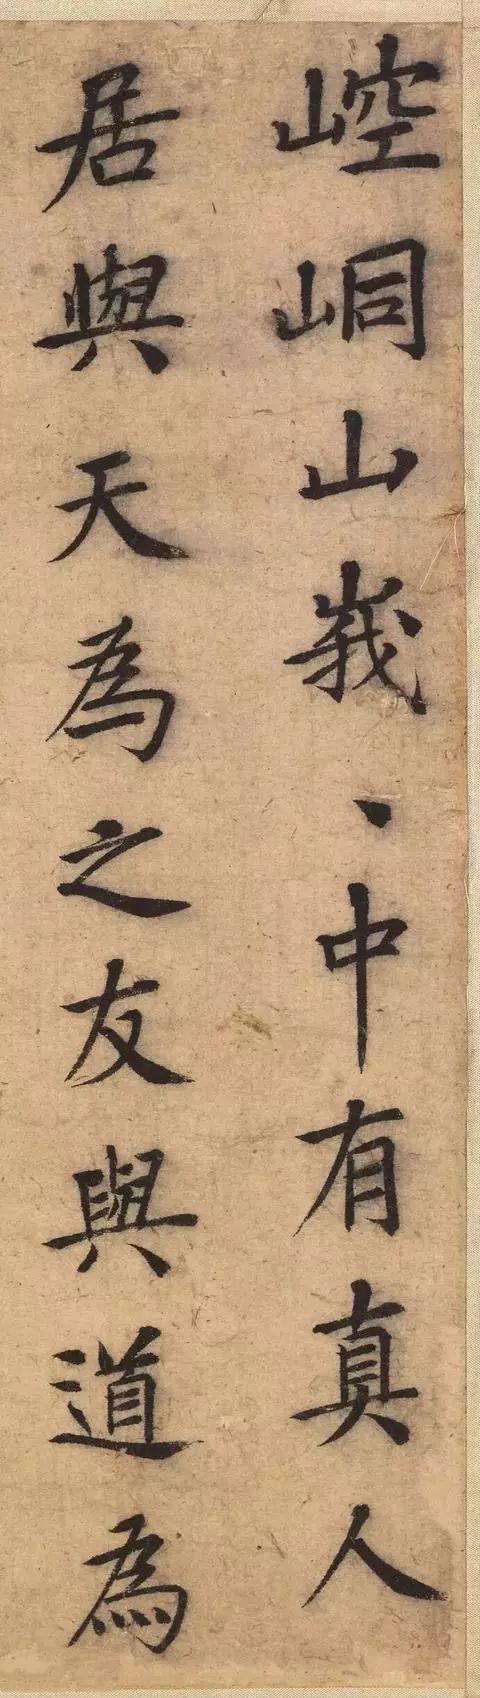 崆峒山峩、中有真人
居與天為之友與道為